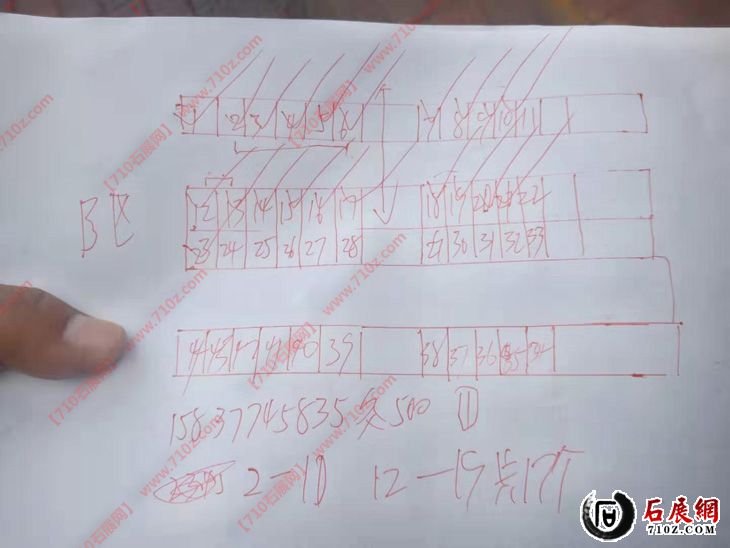 2 3 4 5 6 7 8 9 10 11
12 13 14 15 16 17 18 19 20 21 22
B区 23 24 25 26 27 28 29 30 31 32 33
44 43 42 41 40 39 38 37 36 35 34
15837745835 500 ①
2—10 12—19 共17个
【710石展网】www.710z.com
石展網
710Z.COM